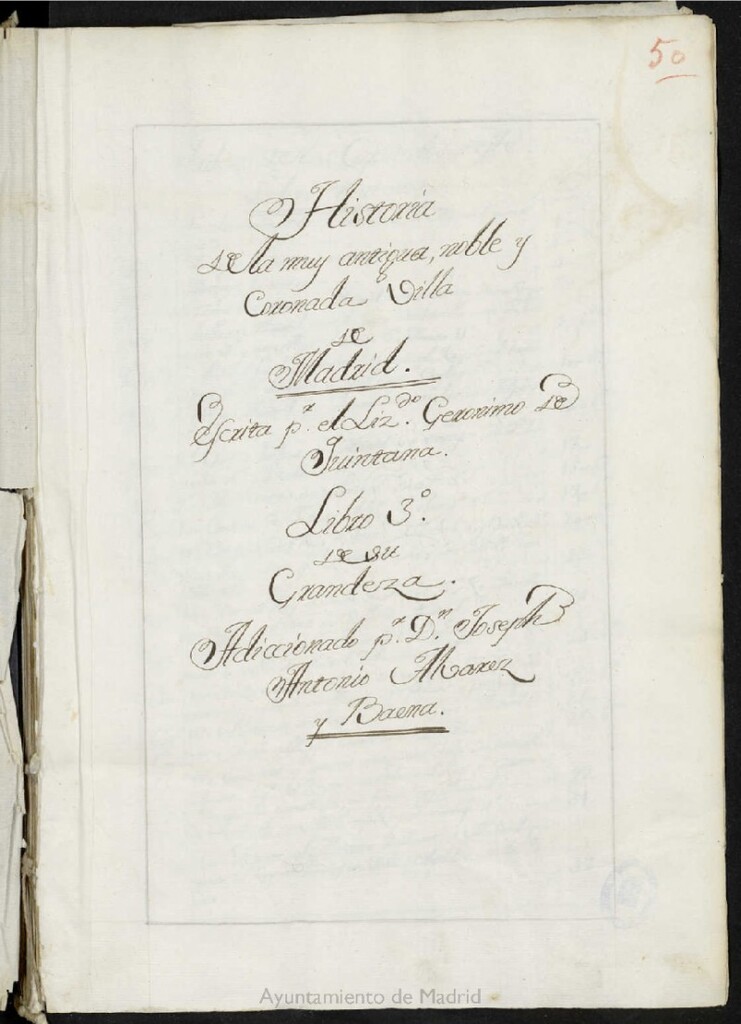 50
Historia
de la muy antigua, noble y
Coronada Villa
de
Madrid.
Escrita p.r el Liz.do Geronimo de
Quintana.
Libro 3.º
de su
Grandeza.
Adiccionado p.r D.n Joseph
Antonio Alvarez
y Baena.
Ayuntamiento de Madrid